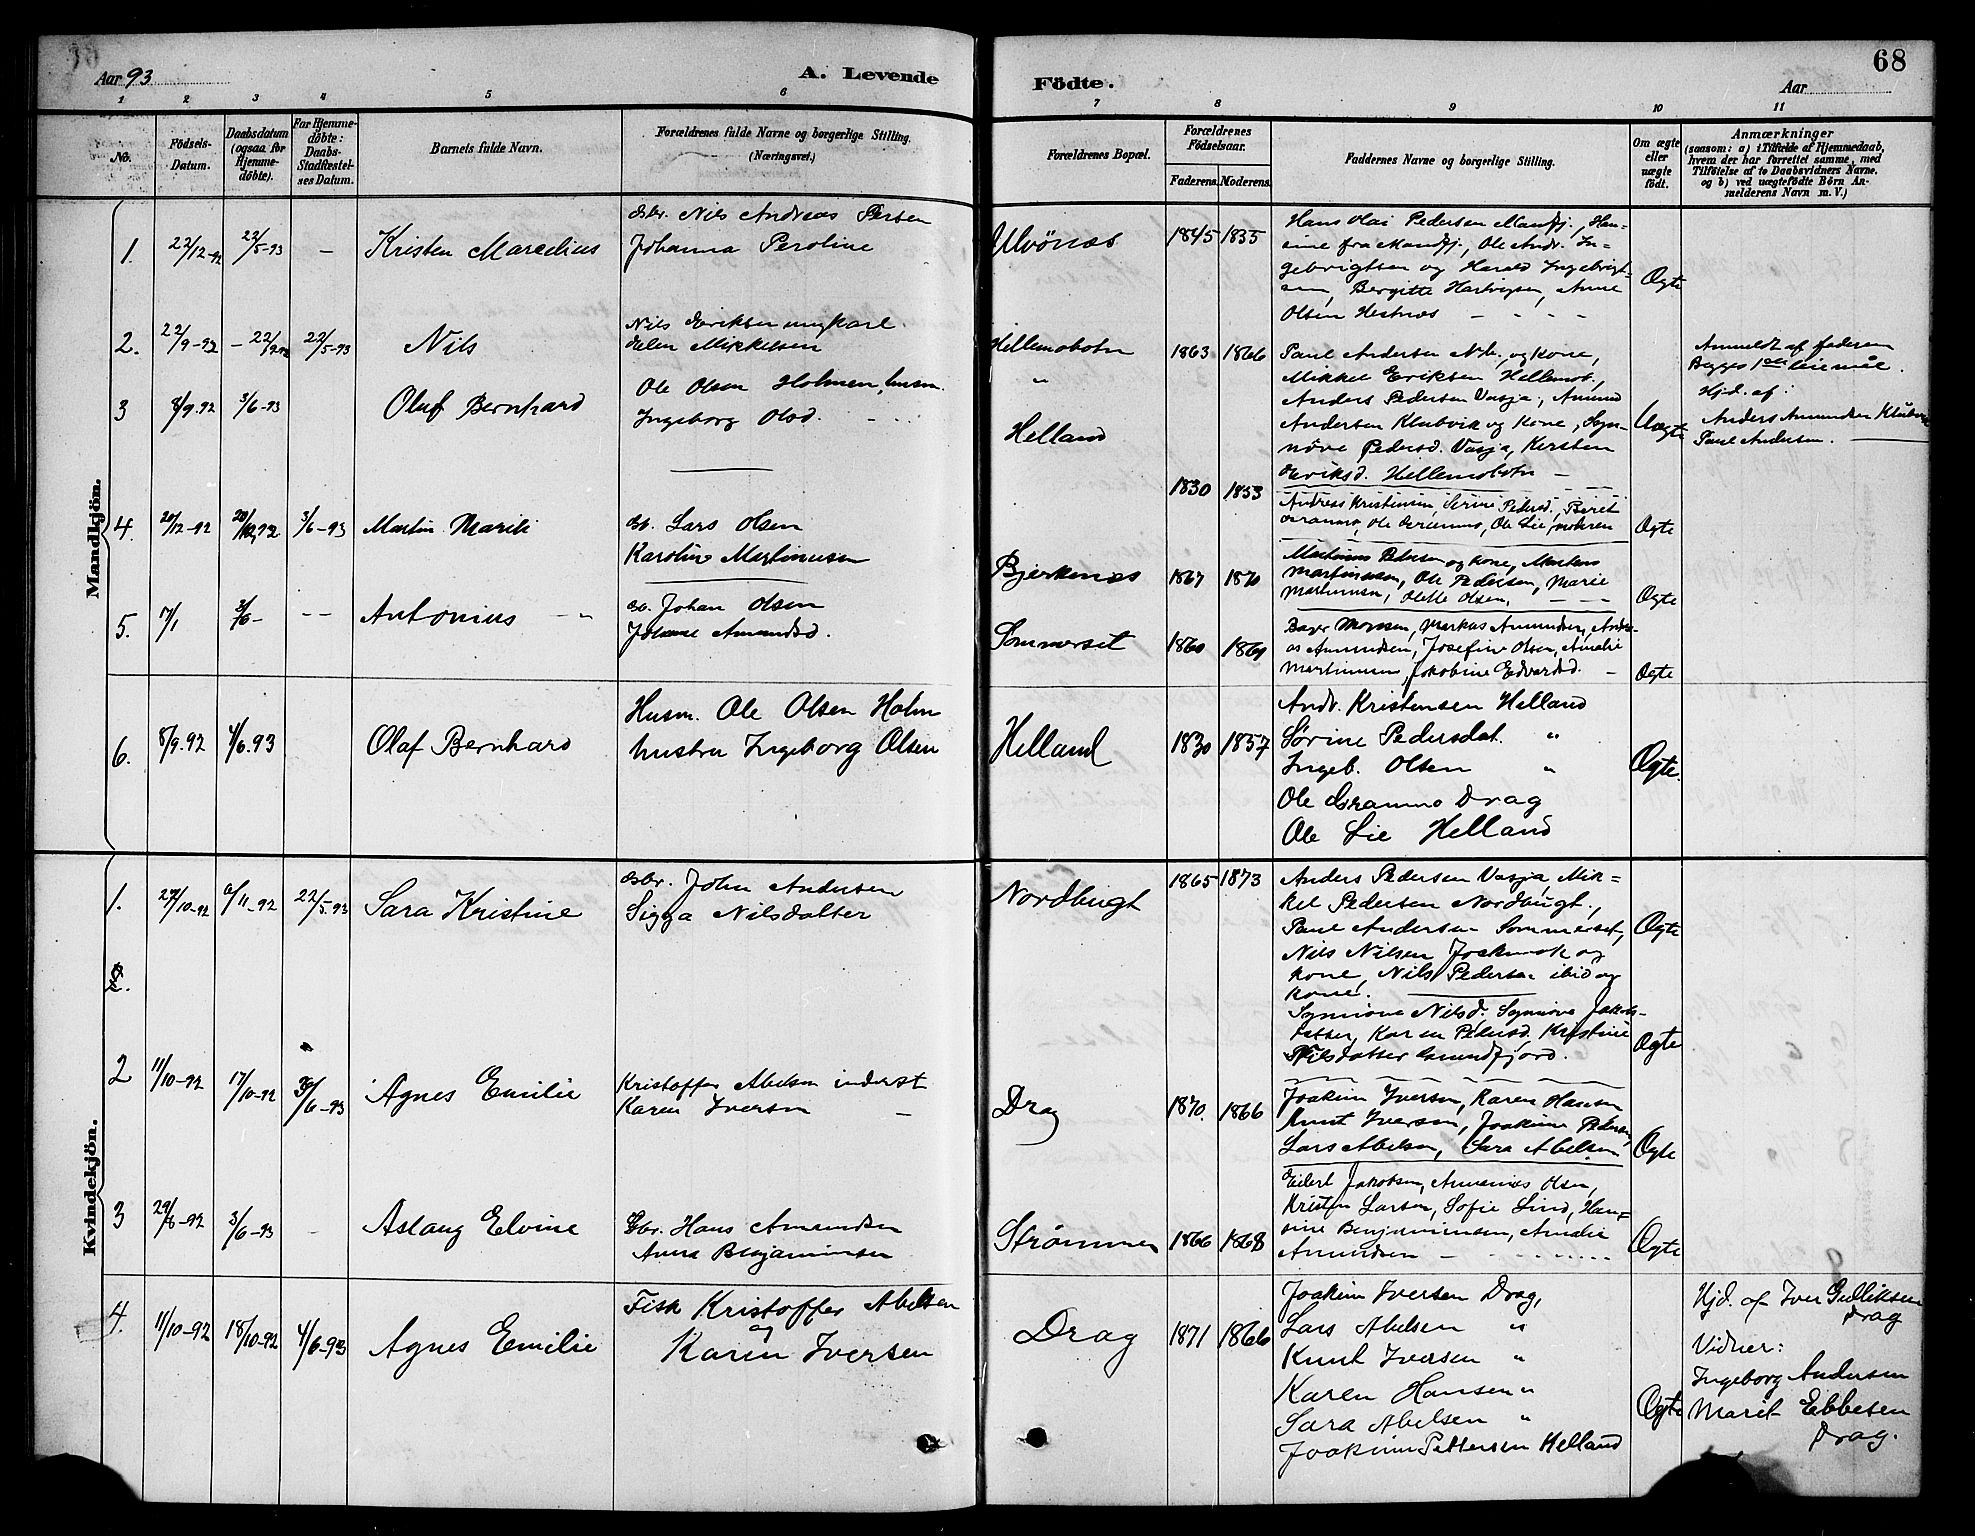 68
Aar 93
A. Levende
Födte.
Aar
1 2 3 4 5 6 7 8 9 10 11
No.
Födsels-
Datum.
Daabsdatum
(ogsaa for
Hjemme-
döbte).
For Hjemme-
döbte:
Daabs-
Stadfæstel-
ses Datum.
Barnets fulde Navn.
Forældrenes fulde Navne og borgerlige Stilling.
(Næringsvei.)
Forældrenes Bopæl.
Forældrenes
Födselsaar.
Faderens.
Moderens.
Faddernes Navne og borgerlige Stilling.
Om ægte
eller
uægte
födt.
Anmærkninger
(saasom: a) i Tilfælde af Hjemmedaab,
hvem der har forrettet samme, med
Tilföielse af to Daabsvidners Navne.
og b) ved uægtefödte Börn An-
melderens Navn m. V.)
Mandkjön.
1. 22/12-92 22/5-93 – Kristen Marcelius
Gbr. Nils Andreas Persen
Johanna Peroline
Ulvönæs 1845 1835
Hans Olai Pedersen Mandfj., Han-
sine fra Mandfj., Ole Andr. In-
gebrigtsen og Harald Ingebrigt-
sen, Bergitte Hartvigsen, Anne
Olsen Hestnæs – – – –
Ægte
2. 22/9-92 – 22/9 92 22/5-93 Nils
Nils Eriksen ungkarl.
Elen Mikkelsen
Hellemobotn 1863 1866
Paul Andersen N.b. og kone,
Mikkel Eriksen Hellemob.,
Anders Pedersen Vasja, Amund
Andersen Klubvik og kone, Syn-
növe Pedersd. Vasja, Kersten
Eriksd. Hellemobotn –
Uægte
Anmeldt af faderen
Begges 1ste leiemål.
Hjd. af:
Anders Amundsen Klubvik
Paul Andersen.
3 8/9 92 3/6-93 Oluf Bernhard
Ole Olsen Holmen, husm.
Ingeborg Olsd.
" Helland
1830 1853
Andreas Kristensen, Serine Pedersd., Berit
Granmo, Ole Granmo, Ole Lie, moderen
Ægte
4. 20/12-92 3/6-93 Martin Marili
Gb. Lars Olsen
Karoline Martinusen
Bjerkenæs 1867 1870
Martinus Pedersen og kone, Mortens
Martinusen, Ole Pedersen, Marie
Martinusen, Olette Olsen. – – –
Ægte
5. 17/1 3/6- – – Antonius
Gb. Johan Olsen
Johanne Amundsd.
Sommerset 1860 1861
Markus Amundsen, Andre-
as Amundsen, Josefine Olsen, Amalie
Martinusen, Jakobine Edvardsd. –
Ægte
6. 8/9.92 4/6.93 Olaf Bernhard
Husm. Ole Olsen Holm
hustru Ingeborg Olsen
Helland 1830 1857
Andr. Kristensen Helland
Sørine Pedersdat. "
Ingeb. Olsen "
Ole Granmo Drag
Ole Lie Helland
Ægte.
Kvindekjön.
1. 27/10-92 6/11-92 22/5-93 Sara Kristine
Gbr. John Andersen
Sigga Nilsdatter
Nordbugt 1865 1873
Anders Pedersen Vasja, Mik=
kel Pedersen Nordbugt.,
Paul Andersen Sommerset,
Nils Nilsen Jockmok og
kone, Nils Pedersen ibid og
kone.
Ægte
2.
Synnöve Nilsd. Synnöve Jakobs-
datter, Karen Pedersd. Kristine
Nilsdatter Grundfjord.
Ægte
2 11/10-92 17/10-92 3/6-93 Agnes Emilie
Kristoffer Abelsen inderst
Karen Iversen –
Drag 1870. 1866
Joakim Iversen, Karen Hansen
Knut Iversen, Joakim Pedersen,
Lars Abelsen, Sara Abelsen
Ægte
3 29/8-92 3/6-93 – Aslaug Elvine
Gbr. Hans Amundsen
Anna Benjaminsen
Strømmen 1866 1868
Eilert Jakobsen, Annanias Olsen,
Kristen Larsen, Sofie Lind, Han=
sine Benjaminsen, Amalie
Amundsen –
Ægte
4. 11/10-92 18/10-92 4/6-93 Agnes Emilie
Fisk Kristoffer Abelsen
og
Karen Iversen
Drag 1871 1866
Joakim Iversen Drag,
Lars Abelsen "
Knut Iversen "
Karen Hansen "
Sara Abelsen "
Joakim Pettersen Helland
Ægte
Hjd. af Iver Gulliksen
Drag
Vidner:
Ingeborg Andersen
Marit Ebbesen
Drag.